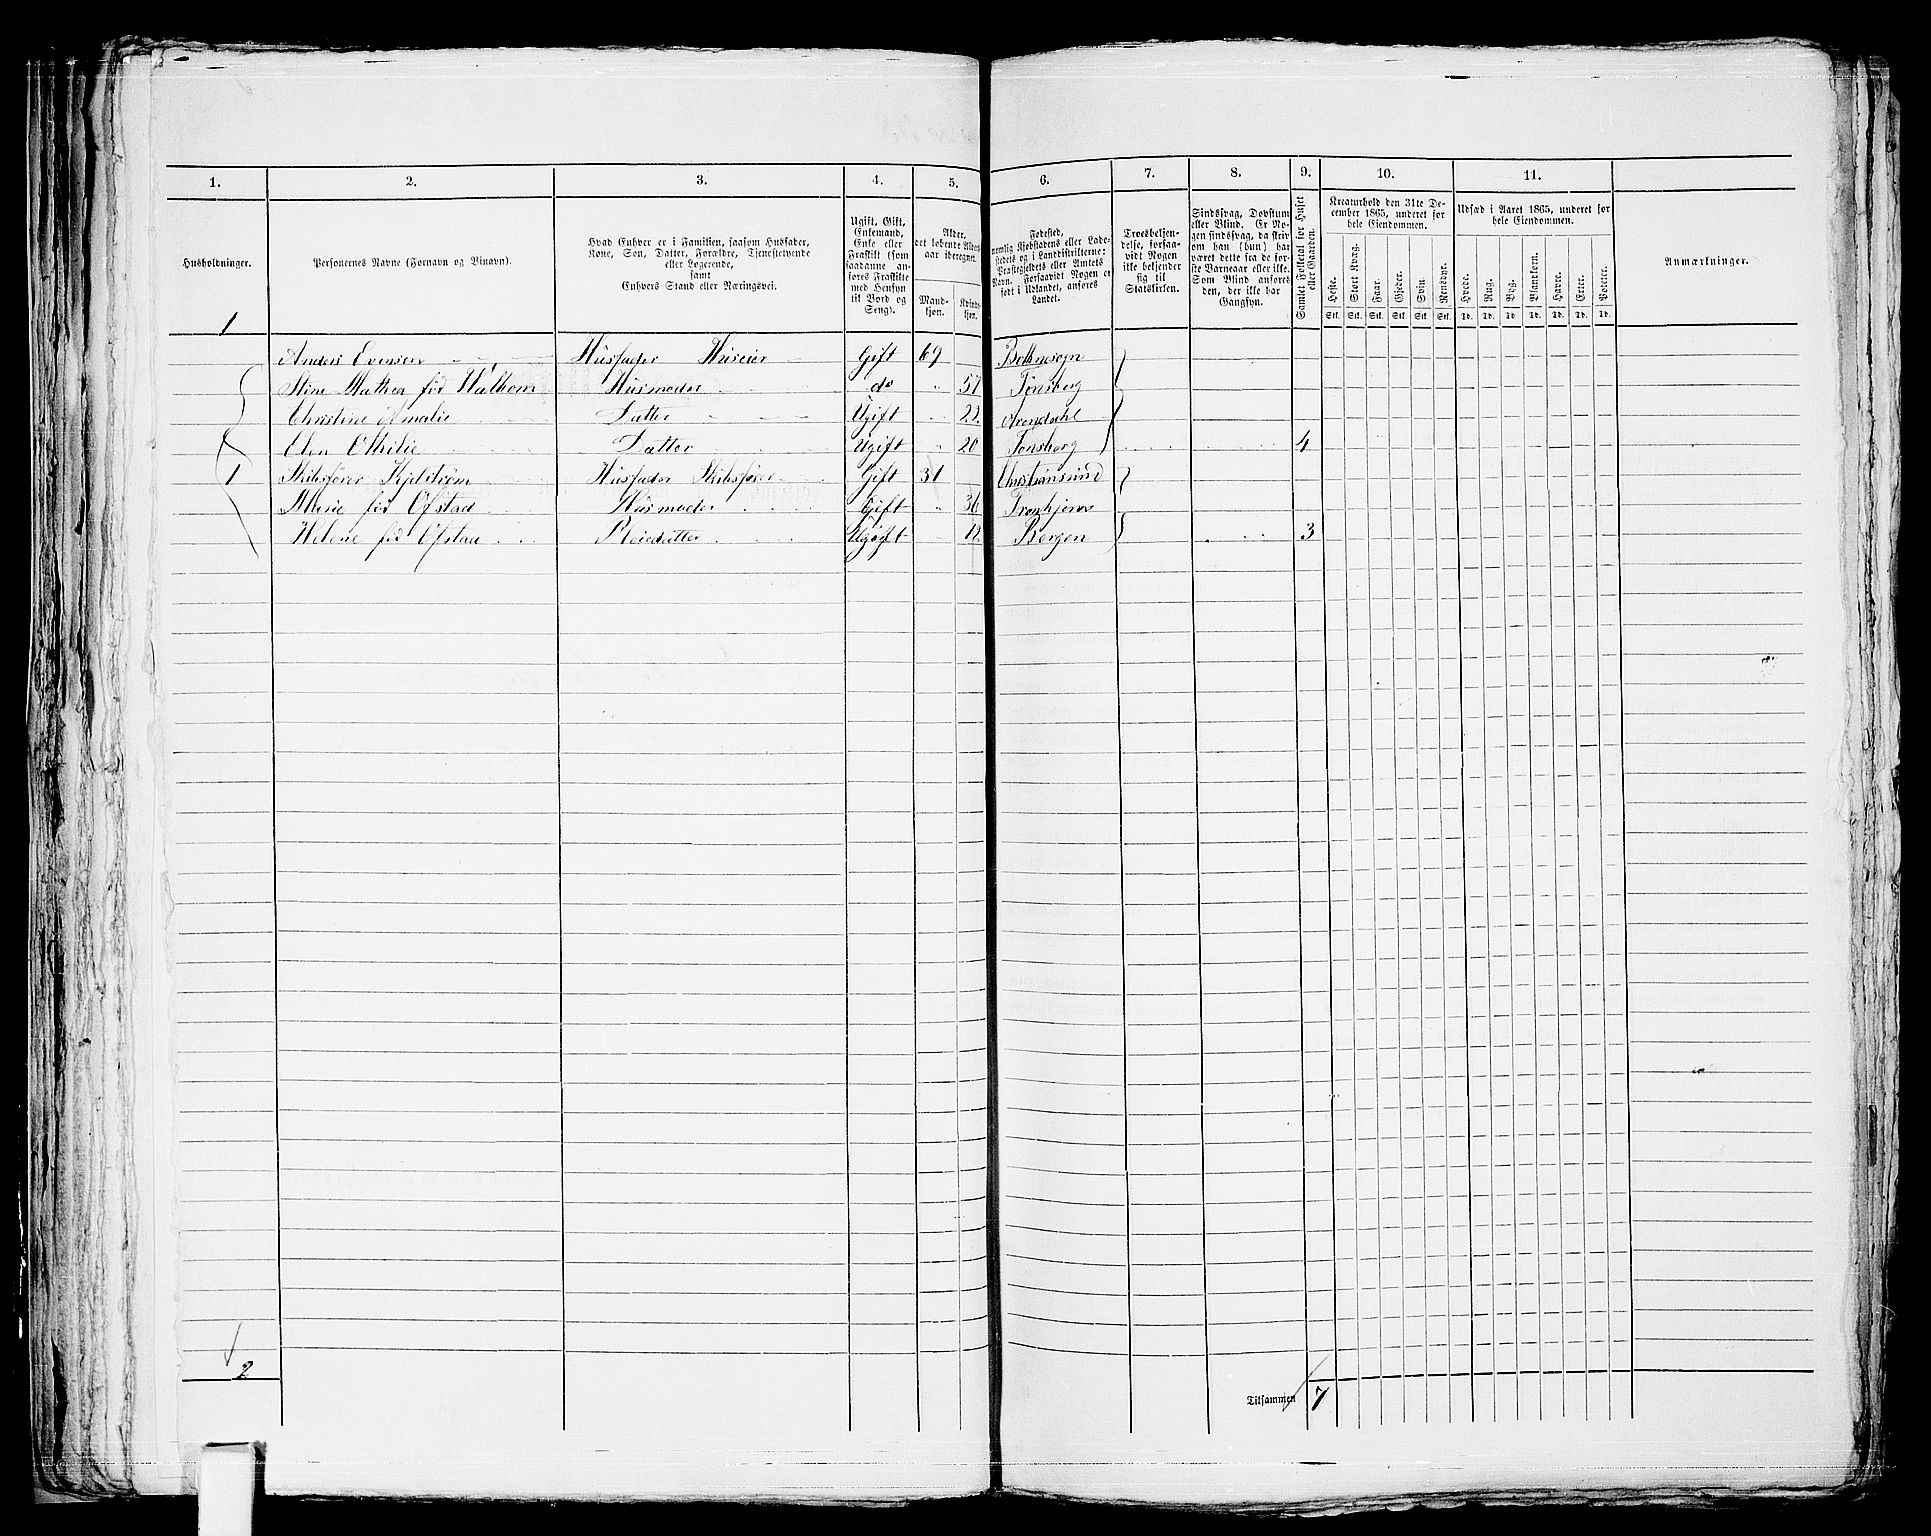 1. 2. 3. 4. 5. 6. 7. 8. 9. 10. 11.
Husholdninger.
Personernes Navne (Fornavn og Tilnavn).
Hvad Enhver er i Familien, saasom Husfader,
Kone, Søn, Datter, Forældre, Tjenestetyende
eller Logerende,
samt
Enhvers Stand eller Næringsvei.
Ugift, Gift,
Enkemand,
Enke eller
Fraskilt (som
saadanne an-
føres Fraskilte
med Hensyn
til Bord og
Seng).
Alder,
det løbende Alders-
aar iberegnet.
Mand-
kjøn.
Kvinde-
kjøn.
Fødested,
nemlig Kjøbstadens eller Lade-
stedets og i Landdistrikterne:
Præstegjeldets eller Amtets
Navn. Forsaavidt Nogen er
født i Udlandet, anføres
Landet.
Troesbekjen-
delse, forsaa-
vidt Nogen
ikke bekjender
sig til
Statskirken.
Sindssvag, Døvstum
eller Blind. Er No-
gen sindssvag, da skriv
om han (hun) har
været dette fra de før-
ste Barneaar eller ikke.
Som Blind anføres
den, der ikke har
Gangsyn.
Samlet Folketal for Huset
eller Gaarden.
Kreaturhold den 31te De-
cember 1865, underet for
hele Eiendommen.
Heste. Stort Kvæg. Faar. Gjeder. Svin. Rensdyr.
Stk. Stk. Stk. Stk. Stk. Stk.
Udsæd i Aaret 1865, underet for
hele Eiendommen.
Hvede. Rug. Byg. Blandkorn. Havre. Erter. Poteter.
Td. Td. Td. Td. Td. Td. Td.
Anmærkninger.
1
Anders Evensen Husfader Huseier Gift 69
Stine Mathea fød Husmoder do 57 Tønsberg
Christine Amalie Datter Ugift 22 Arendahl
Elen Othilie Datter Ugift 20 Tønsberg 4
1 Skibsfører Kjelstrøm Husfader Skibsfører Gift 31 Christiansund
Marie fød Ofstad Husmoder Gift 36 Tronhjem
Helene fød Ofstad Pleiedatter Ugift 12 Bergen 3
2
Tilsammen 7